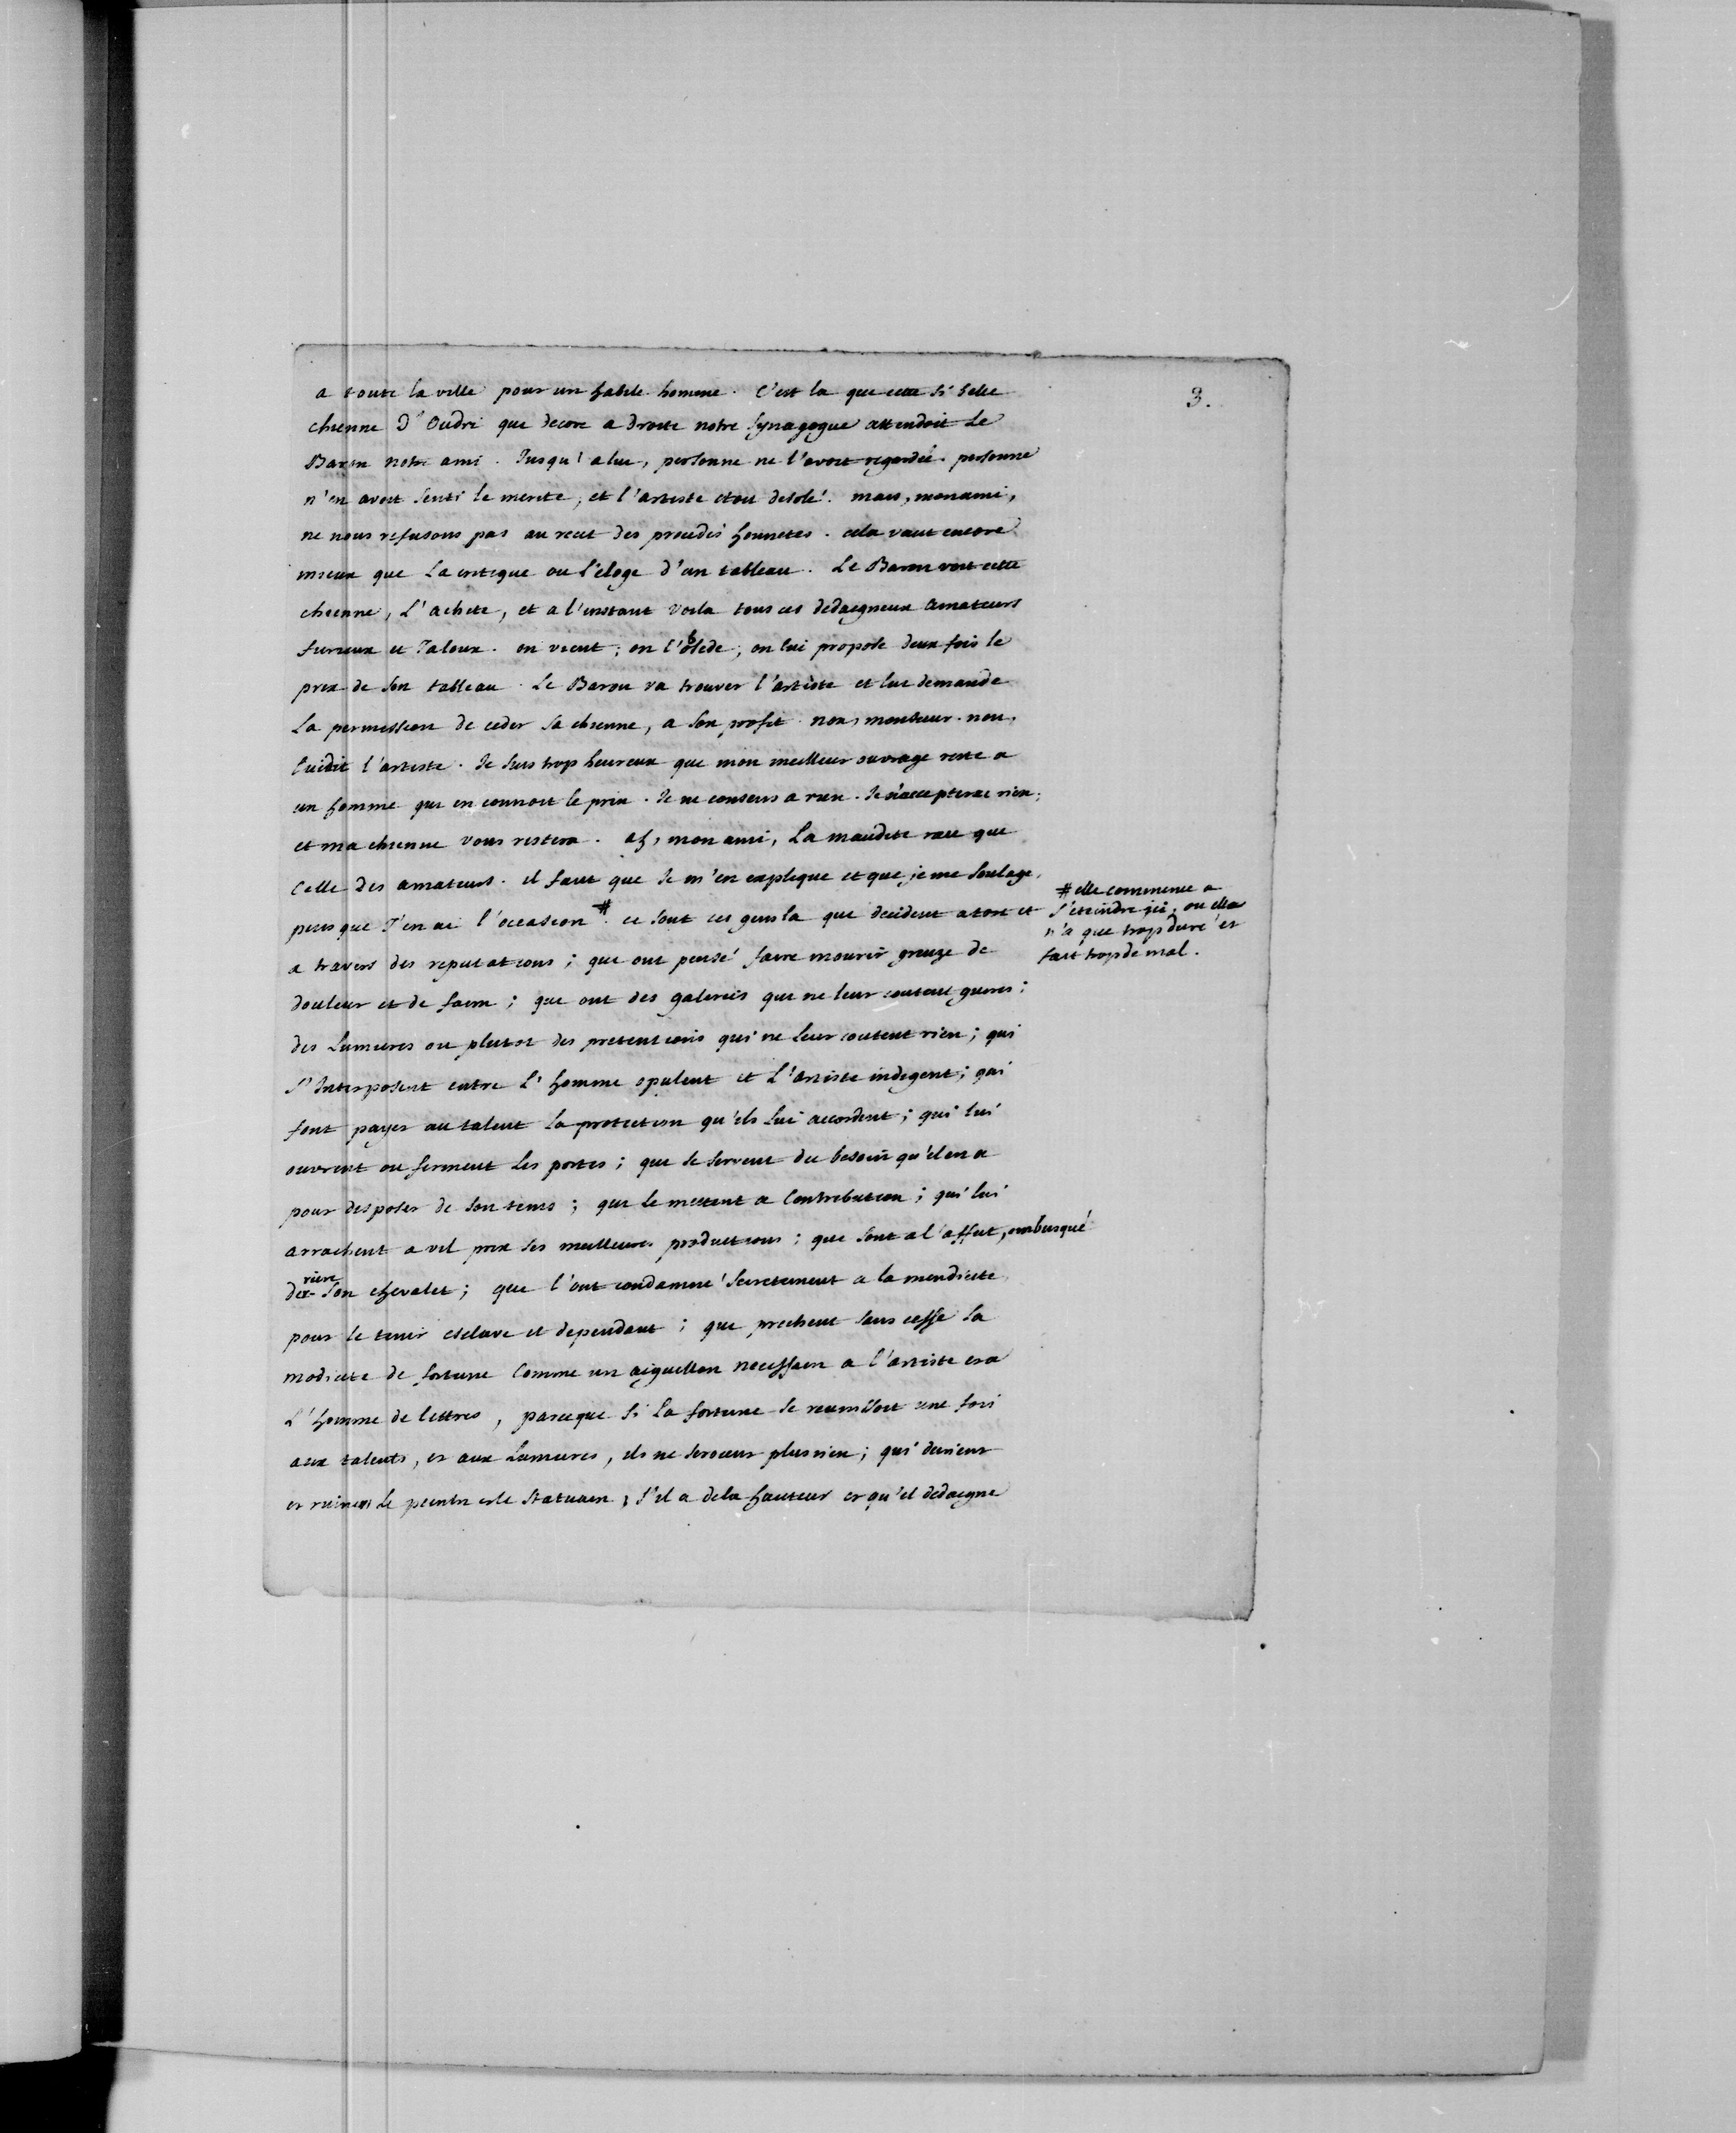 3.
a toute la ville pour un habile homme. C'est la que cette si belle
chienne d'Oudri qui decore a droite notre Synagogue attendoit le
Baron notre ami. Jusqu'a lui, personne ne l'avoit regardée. personne
n'en avoit senti le merite, et l'artiste etoit desolé. mais, mon ami,
ne nous refusons pas au recit des procedés honnetes. cela vaut encore
mieux que la critique ou l'éloge d'un tableau. Le Baron voit cette
chienne, l'achete, et a l'instant voila tous ces dedaigneux amateurs
furieux et Jaloux. on vient; on l'obsede; on lui propose deux fois le
prix de son tableau. Le Baron va trouver l'artiste et lui demande
La permission de ceder sa chienne, a son profit. non, monsieur. non,
lui dit l'artiste. Je suis trop heureux que mon meilleur ouvrage reste a
un homme qui en connoit le prix. Je ne consens a rien. Je n'accepterai rien;
et ma chienne vous restera. ah, mon ami, La maudite race que
celle des amateurs. il faut que Je m'en explique et que je me soulage,
puis que J'en ai l'occasion #. ce sont ces gens la qui decident a tort et
# elle commence a
s'eteindre ici, ou elle
n'a que trop duré et
fait trop de mal.
a travers des reputations; qui ont pensé faire mourir greuze de
douleur et de faim; qui ont des galeries qui ne leur coutent gueres;
des Lumieres ou plutot des pretentions qui ne leur coutent rien; qui
s'Interposent entre l'homme opulent et l'artiste indigent; qui
font payer au talent la protection qu'ils lui accordent; qui lui
ouvrent ou ferment les portes; qui se servent du besoin qu'il en a
pour disposer de son tems; qui le mettent a contribution; qui lui
arrachent a vil prix ses meilleures productions; qui sont a l'affut, embusqué
derriere son chevalet; qui l'ont condamné secretement a la mendicité
pour le tenir esclave et dependant; qui prechent sans cesse la
modicité de fortune comme un aiguillon necessaire a l'artiste et a
L'homme de lettres, parceque si la fortune se reunissoit une fois
aux talents, et aux Lumieres, ils ne seroient plus rien; qui
et ruinent le peintre et le Statuaire, s'il a de la hauteur et qu'il dedaigne